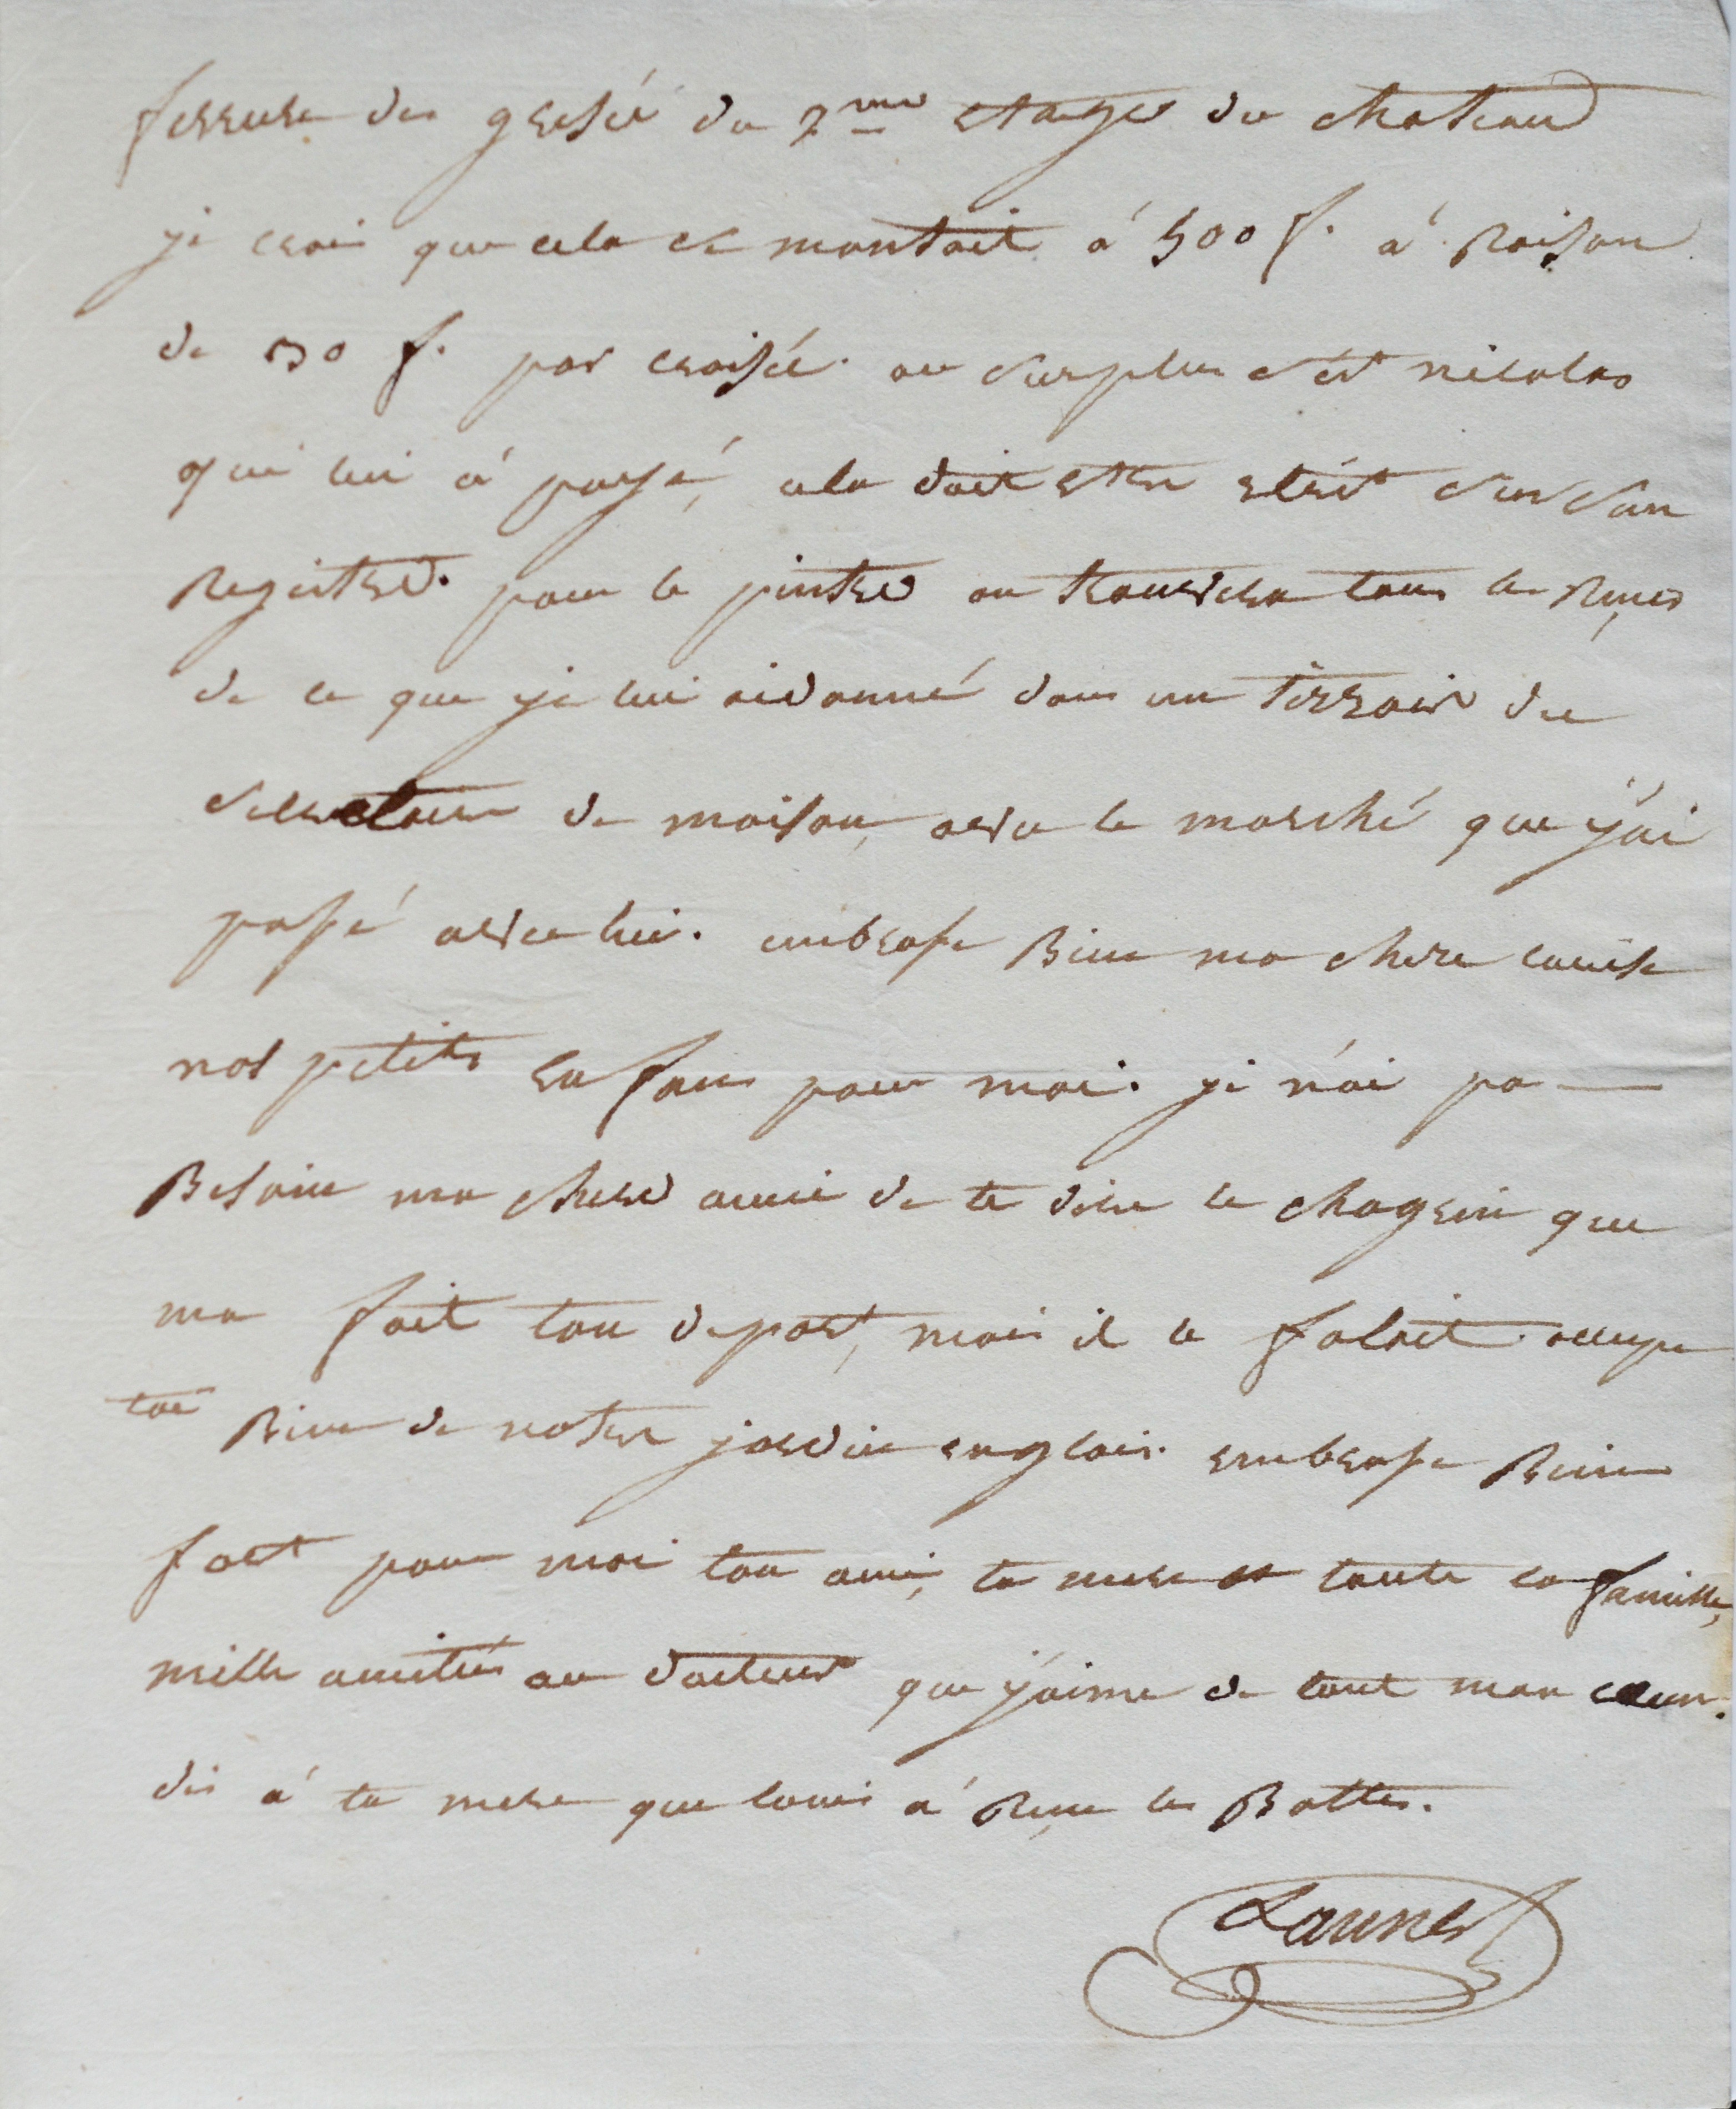 ferrure des du 2me etages du chateau
je crois que cela ce montait á 500 f. á Raison
de 50 f. par croisée. au surplus c'est nicolas
qui lui á payé, cela doit etre ecrit sur son
Registre. pour le pintre on trouvera tous les Reçus
de ce que je lui ai donné dans un tirroir du
secretaire de maison, avec le marché que j'ai
passé avec lui. embrasse Bien ma chere louise
nos petits enfans pour moi. je n'ai pa
Besoin ma chere amie de te dire le chagrin que
ma fait ton depart, mais il le falait. occupe
toi Bien de notre jardin englais. embrasse Bien
fort pour moi ton ami, ta mere et toute la famille,
mille amitiés au docteur que j'aime de tout mon coeur.
dis á ta mere que louis á Reçu les Bottes.
Lannes